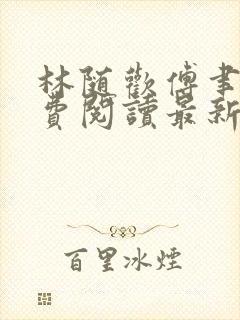 林随歡傅聿
費閱讀最新
百里冰煙